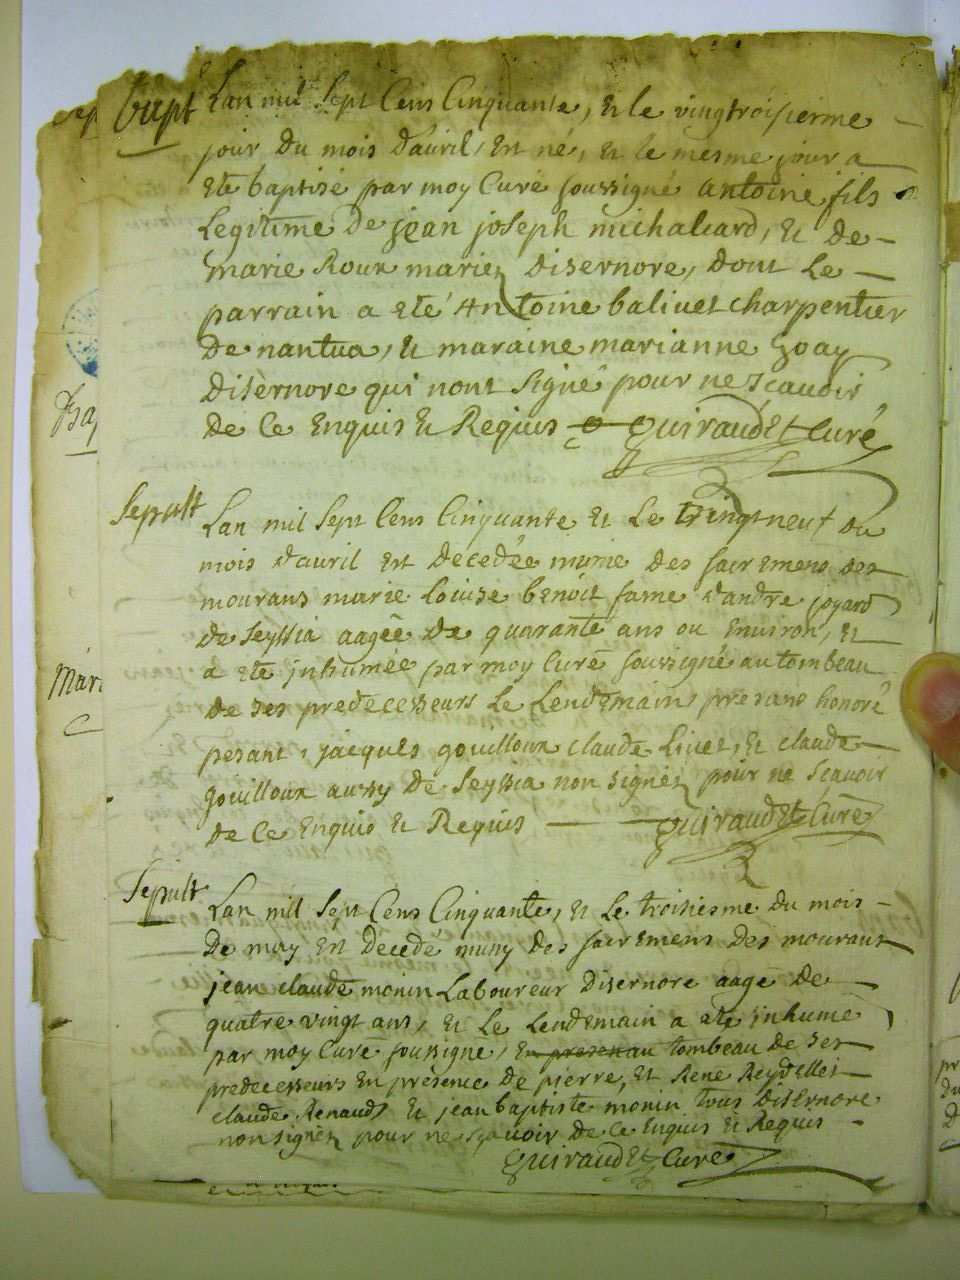 Bapt
Lan mil Sept Cens Cinquante, et le vingtroisieme
jour du mois d'avril, est né, et le mesme jour a
eté baptisé par moy Curé soussigné antoine fils
Legitime de jean joseph michaleard, et de
marie Roux mariez disernore, dont le
parrain a eté Antoine balivet charpentier
de nantua, et maraine marianne goay
disernore qui n'ont signé pour ne scavoir
de ce enquis et Requis Guiraudet Curé
Sepult
Lan mil Sept Cens Cinquante et Le vingt neuf du
mois d'avril est decedée munie des sacremens des
mourans marie Louise benoit fame d'andre joyard
de Seyssia aagée de quarante ans ou environ, et
a eté inhumée par moy Curé soussigné au tombeau
de ses predecesseurs Le Lendemain, presans honoré
pesant, jacques gouilloux claude Livet, et claude
gouilloux aussy de Seyssia non signéz pour ne Scavoir
de ce enquis et Requis Guiraudet Curé
Sepult
Lan mil Sept Cens Cinquante, et Le troisiesme du mois
de may est decedé muny des sacremens des mourans
jean claude monin Laboureur disernore aage de
quatre vingt ans, et Le Lendemain a eté inhumé
par moy Curé soussigné, en presen au tombeau de ses
predecesseurs en presence de pierre, et René Reydellet
claude Renaud, et jean baptiste monin tous disernore
non signéz pour ne sçavoir de ce enquis et Requis
Guiraudet Curé
Bap
Mar